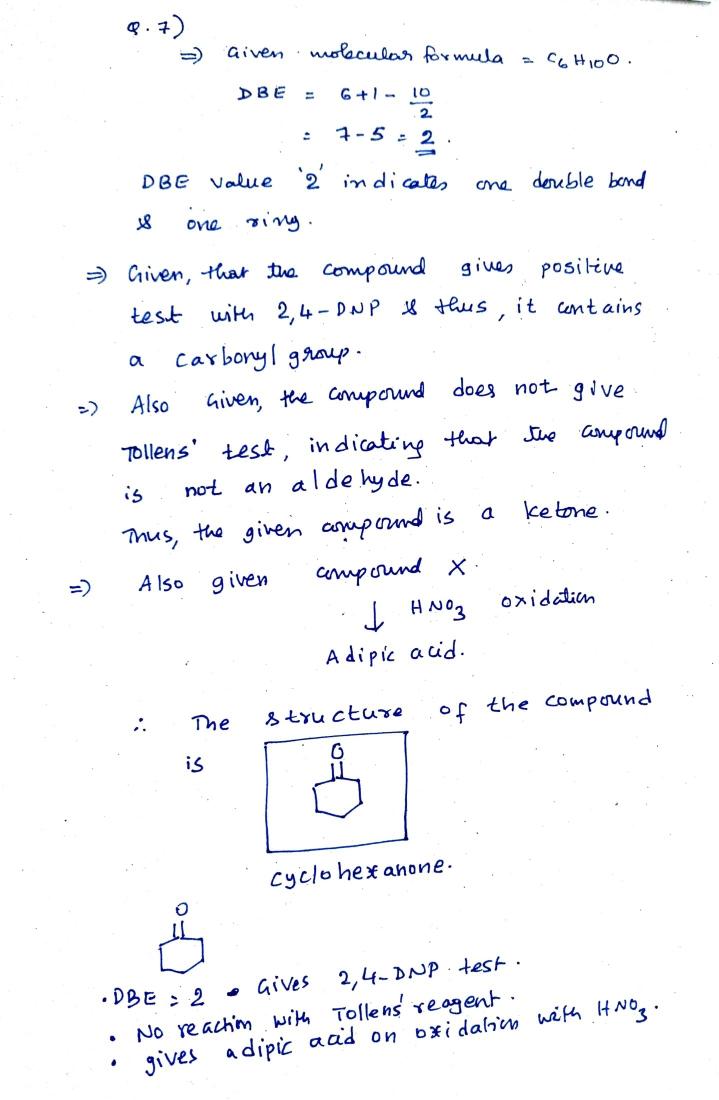 Q.7)
⇒ Given molecular formula = C6H10O.
DBE = 6+1- 10/2
: 7-5 = 2.
DBE value '2' indicates one double bond
& one ring.
⇒ Given, that the compound gives positive
test with 2,4-DNP & thus, it contains
a carbonyl group.
⇒ Also Given, the compound does not give
Tollens' test, indicating that the compound
is not an aldehyde.
Thus, the given compound is a ketone.
⇒ Also given compound X.
↓ HNO3 oxidation
Adipic acid.
∴ The structure of the compound
is
O
cyclohexanone.
O
• DBE = 2 • Gives 2,4-DNP test.
• No reaction with Tollens' reagent.
• gives adipic acid on oxidation with HNO3.